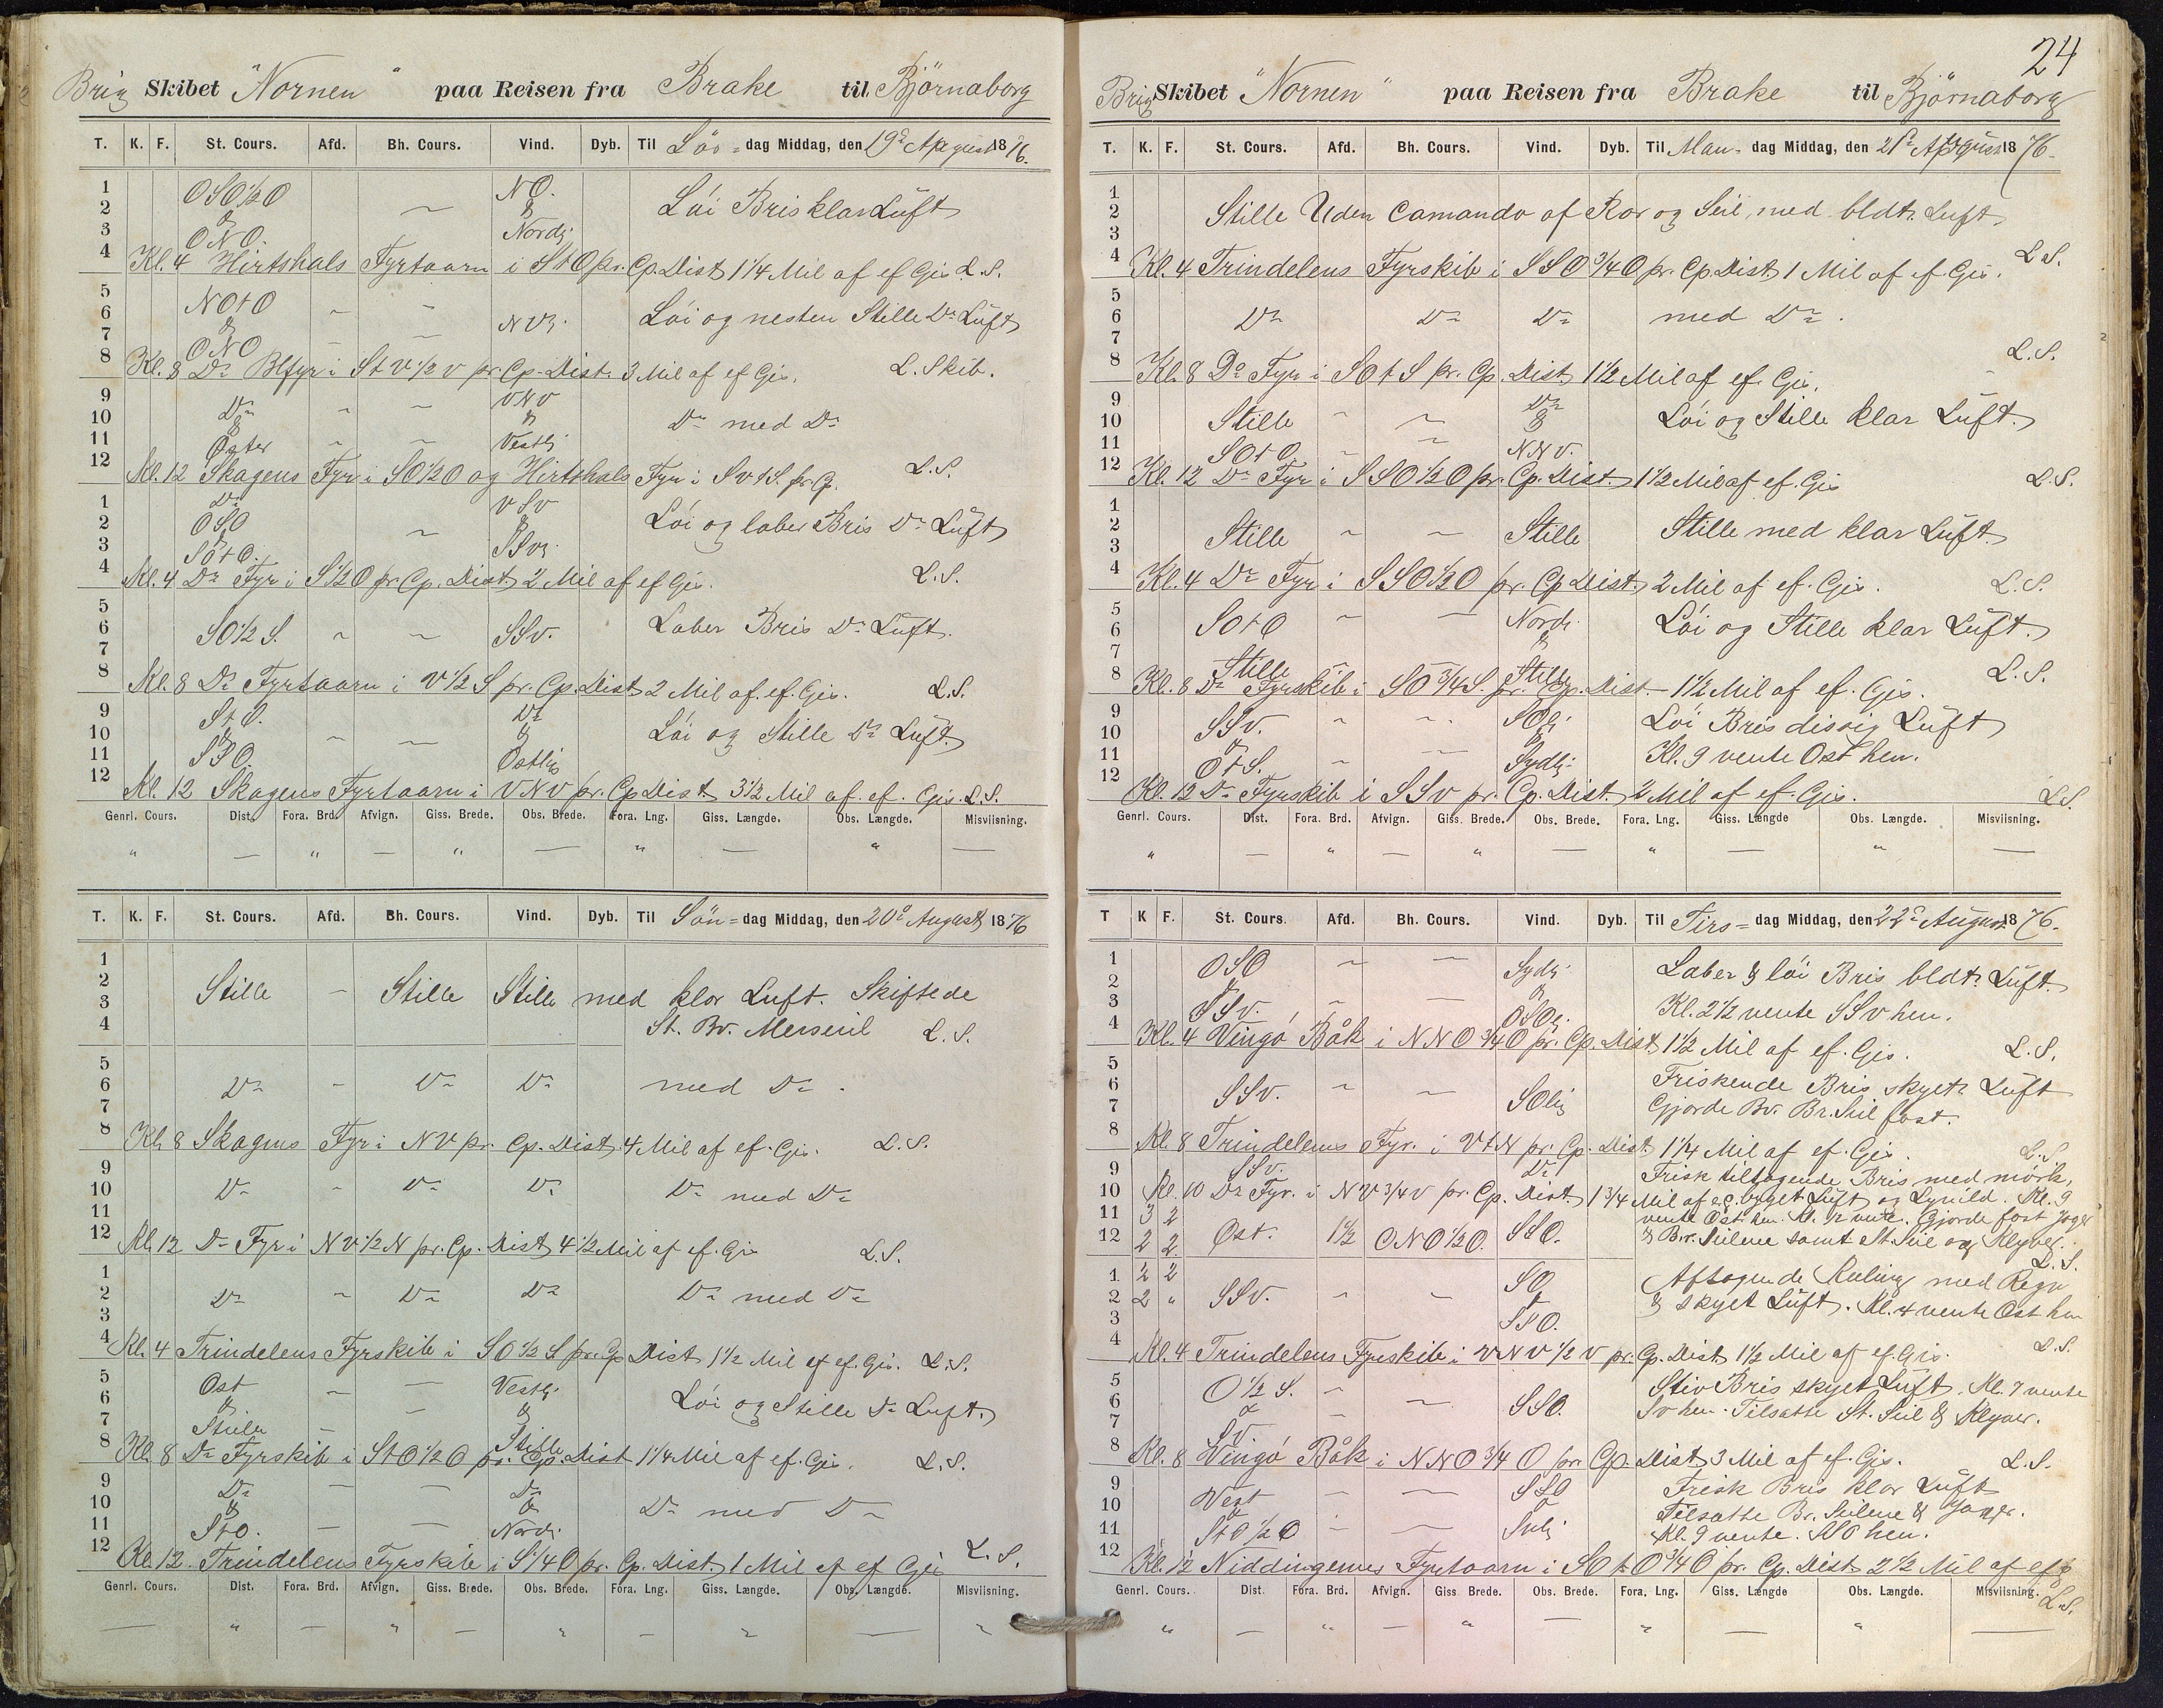 Brig Skibet "Nornen" paa Reisen fra Brake til Björnaborg
T. K. F. St. Cours. Afd. Bh. Cours. Vind. Dyb. Til Lös=dag Middag, den 19de August 1876.
1 OSO½O NO.
2 & ~ & Löi Bris klar Luft
3 ONO. Nordl.
4 Kl. 4 Hirtshals Fyrtaarn i StO pr. Cp. Dist 1¼ Mil af ef Gis. L.S.
5 NOtO
6 & ~ ~ NVl. Löi og nesten Stille Do Luft
7 ONO
8 Kl. 8 Do Blfyr i StV½V pr. Cp. Dist. 3 Mil af ef Gis. L. Skib.
9 Do ~ ~ VNV
10 & & Do med Do
11 Öster ~ ~ Vestl.
12 Kl. 12 Skagens Fyr i SO½O og Hirtshals Fyr i SVtS. pr. Cp. L.S.
1 Do VSV
2 OSO ~ & Löi og laber Bris Do Luft
3 SOtO. SSVl.
4 Kl. 4 Do Fyr i S½O pr. Cp. Dist 2 Mil af ef Gis. L.S.
5
6 SO½S. ~ ~ SSV. Laber Bris Do Luft.
7
8 Kl. 8 Do Fyrtaarn i V½S pr. Cp. Dist 2 Mil af. ef. Gis. L.S.
9 StO. Do
10 & ~ ~ & Löi og Stille Do Luft.
11 SSO. Östlig
12 Kl. 12 Skagens Fyrtaarn i VNV pr. Cp Dist. 3½ Mil af. ef. Gis. L.S.
Genrl. Cours. Dist. Fora. Brd. Afvign. Giss. Brede. Obs. Brede. Fora. Lng. Giss. Længde. Obs. Længde. Misviisning.
" — " — " — " — " —
T. K. F. St. Cours. Afd. Bh. Cours. Vind. Dyb. Til Sön=dag Middag, den 20de August 1876
1
2
3 Stille — Stille Stille med klar Luft. Skiftede
4 St. Bv. Merseil L.S.
5
6 Do — Do Do med Do.
7
8 Kl. 8 Skagens Fyr i NV pr. Cp. Dist. 4 Mil af ef. Gis. L.S.
9
10 Do — Do Do Do med Do
11
12 Kl. 12 Do Fyr i NV½N pr. Cp. Dist 4½ Mil af ef. Gis L.S.
1
2 Do — Do Do Do med Do
3
4 Kl. 4 Trindelens Fyrskib i SO½S pr. Cp Dist 1½ Mil af ef. Gis. L.S.
5 Ost ~ — Vestl.
6 & & Löi og Stille Do Luft.
7 Stille — — Stille
8 Kl. 8 Do Fyrskib i StO½O pr. Cp. Dist 1¼ Mil af ef. Gis. L.S.
9 Do — — Do
10 & & Do med Do
11 StO. — — Nordl.
12 Kl. 12. Trindelens Fyrskib i S¼O pr. Cp. Dist. 1 Mil af ef Gis L.S.
Genrl. Cours. Dist. Fora. Brd. Afvign. Giss. Brede. Obs. Brede. Fora. Lng. Giss. Længde. Obs. Længde. Misviisning.
— " — " — " — " — "
24
Brig Skibet "Nornen" paa Reisen fra Brake til Björnaborg
T. K. F. St. Cours. Afd. Bh. Cours. Vind. Dyb. Til Man=dag Middag, den 21de August 1876.
1
2 Stille Uden Camando af Ror og Seil, med bldt. Luft
3
4 Kl. 4 Trindelens Fyrskib i SSO¾O pr. Cp. Dist 1 Mil af ef. Gis. L.S.
5
6 Do Do Do med Do.
7
8 Kl. 8 Do Fyr i SOtS pr. Cp. Dist 1½ Mil af ef. Gis. L.S.
9 Do
10 Stille ~ ~ & Löi og Stille klar Luft.
11 SOtO ~ NNV.
12 Kl. 12 Do Fyr i SSO½O pr. Cp. Dist. 1½ Mil af ef. Gis L.S.
1
2 Stille ~ ~ Stille Stille med klar Luft.
3
4 Kl. 4 Do Fyr i SSO½O pr. Cp Dist. 2 Mil af ef. Gis. L.S.
5
6 SOtO ~ — Nordl. Löi og Stille klar Luft.
7 Stille — Stille
8 Kl. 8 Do Fyrskib i SO¾S. pr. Cp. Dist. 1½ Mil af ef. Gis. L.S.
9 SSV. ~ ~ SOl. Löi Bris disig Luft
10 & & Kl. 9 vente Ost hen.
11 OtS. ~ — Sydl.
12 Kl. 12 Do Fyrskib i SSV pr. Cp. Dist. 2 Mil af ef. Gis. L.S.
Genrl. Cours. Dist. Fora. Brd. Afvign. Giss. Brede. Obs. Brede. Fora. Lng. Giss. Længde Obs. Længde. Misviisning.
" — " — " — " — " —
T K F. St. Cours. Afd. Bh. Cours. Vind. Dyb. Til Tirs=dag Middag, den 22de August 1876.
1 OSO ~ — Sydl. Laber & löi Bris bldt. Luft.
2 & &
3 SSV. ~ — OSOl. Kl. 2½ vente SSV hen.
4 Kl. 4 Vingö Båk i NNO¾O pr. Cp. Dist 1½ Mil af ef. Gis. L.S.
5 Friskende Bris skyet Luft
6 SSV. ~ — SOlig Gjorde Bv. Br. Seil fast.
7
8 Kl. 8 Trindelens Fyr. i VtN pr. Cp. Dist 1¼ Mil af ef. Gis. L.S.
9 SSV. Do Frisk tiltagende Bris med mörk,
10 Kl. 10 Do Fyr. i NV¾V pr. Cp. Dist. 1¾ Mil af e.c. byget Luft og Lynild. Kl. 9
11 3 2 vente Ost hen. Kl. ½ vente. Gjorde fast Jager
12 2 2 Ost. 1½ ONO½O. SSO. & Br. Seilene samt St. Seil og Klyver. L.S.
1 2 2 SO Aftagende Kuling med Regn
2 2 " SSV. ~ ~ & & skyet Luft. Kl. 4 vente Ost hen
3 SSO.
4 Kl. 4 Trindelens Fyrskib i VNV½V pr. Cp. Dist 1½ Mil af ef. Gis. L.S.
5 O½S. ~ Stiv Bris skyet Luft. Kl. 7 vente
6 & — SSO. SV hen. Tilsatte St. Seil & Klyver.
7 SV.
8 Kl. 8 Vingö Båk i NNO¾O pr. Cp. Dist 3 Mil af ef. Gis. L.S.
9 Vest — — SSO Frisk Bris klar Luft
10 & & Tilsatte Br. Seilene & Jager.
11 StO½O — — Sydl. Kl. 9 vente. SSO hen.
12 Kl. 12 Niddingenes Fyrtaarn i SOtO¾O pr. Cp. Dist 2½ Mil af ef g
L.S.
Genrl. Cours. Dist. Fora. Brd. Afvign. Giss. Brede. Obs. Brede. Fora. Lng. Giss. Længde Obs. Længde. Misviisning.
" — " — " — " — " —